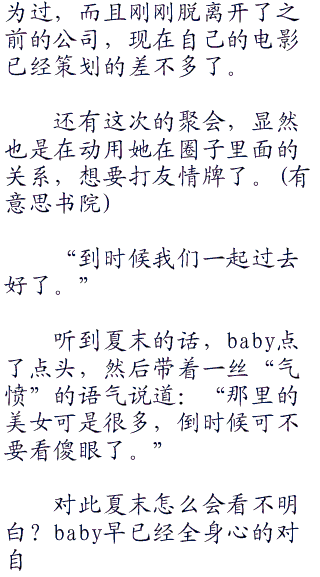 为过，而且刚刚脱离开了之
前的公司，现在自己的电影
已经策划的差不多了。
还有这次的聚会，显然
也是在动用她在圈子里面的
关系，想要打友情牌了。(有
意思书院)
“到时候我们一起过去
好了。”
听到夏末的话，baby点
了点头，然后带着一丝“气
愤”的语气说道：“那里的
美女可是很多，倒时候可不
要看傻眼了。”
对此夏末怎么会看不明
白？baby早已经全身心的对
自